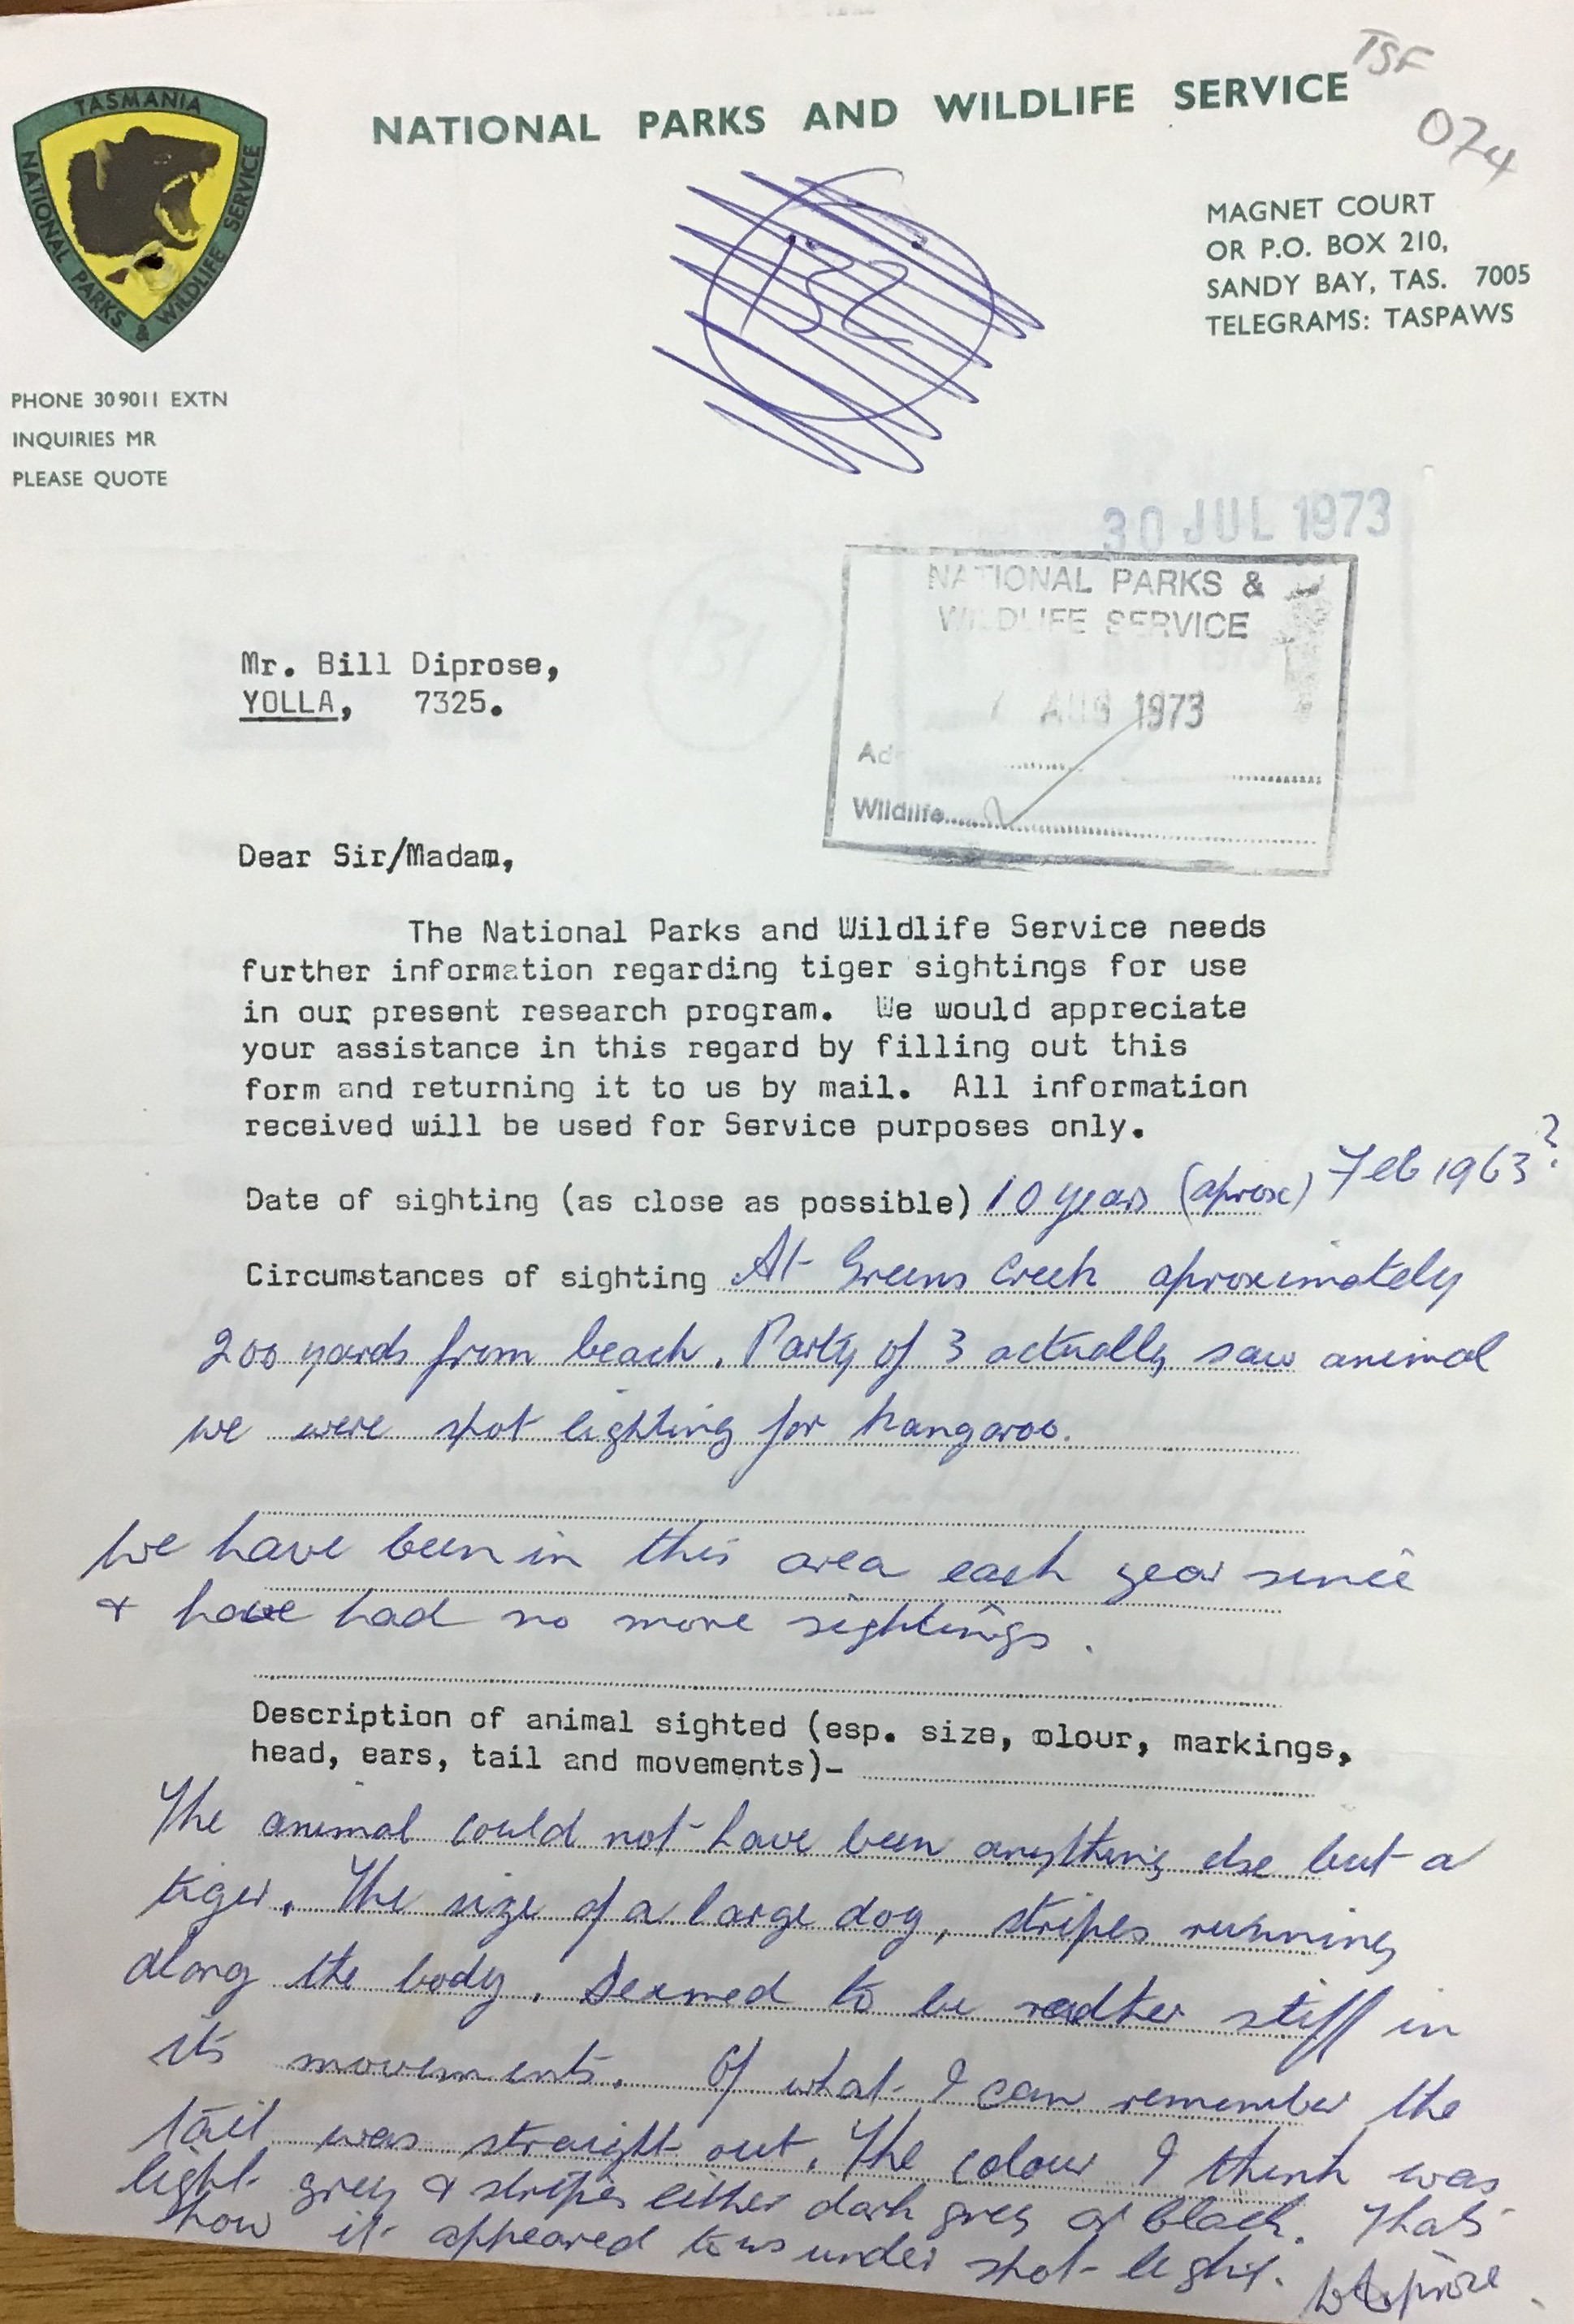 TSF
074
TASMANIA
NATIONAL PARKS & WILDLIFE SERVICE
NATIONAL PARKS AND WILDLIFE SERVICE
MAGNET COURT
OR P.O. BOX 210,
SANDY BAY, TAS. 7005
TELEGRAMS: TASPAWS
PHONE 30 9011 EXTN
INQUIRIES MR
PLEASE QUOTE
30 JUL 1973
NATIONAL PARKS &
WILDLIFE SERVICE
AUG 1973
Wildlife
Mr. Bill Diprose,
YOLLA, 7325.
Dear Sir/Madam,
The National Parks and Wildlife Service needs
further information regarding tiger sightings for use
in our present research program. We would appreciate
your assistance in this regard by filling out this
form and returning it to us by mail. All information
received will be used for Service purposes only.
Date of sighting (as close as possible) 10 years (aprox) Feb 1963?
Circumstances of sighting At Greens Creek aproximately
200 yards from beach. Party of 3 actually saw animal
we were spot lighting for kangaroo.
We have been in this area each year since
& have had no more sightings.
Description of animal sighted (esp. size, olour, markings,
head, ears, tail and movements)-
The animal could not have been anything else but a
tiger. The size of a large dog, stripes running
along the body. Seemed to be rather stiff in
its movements. Of what I can remember the
tail was straight out. The colour I think was
light grey & stripes either dark grey or black. Thats
how it appeared to us under spot-light. W Diprose.